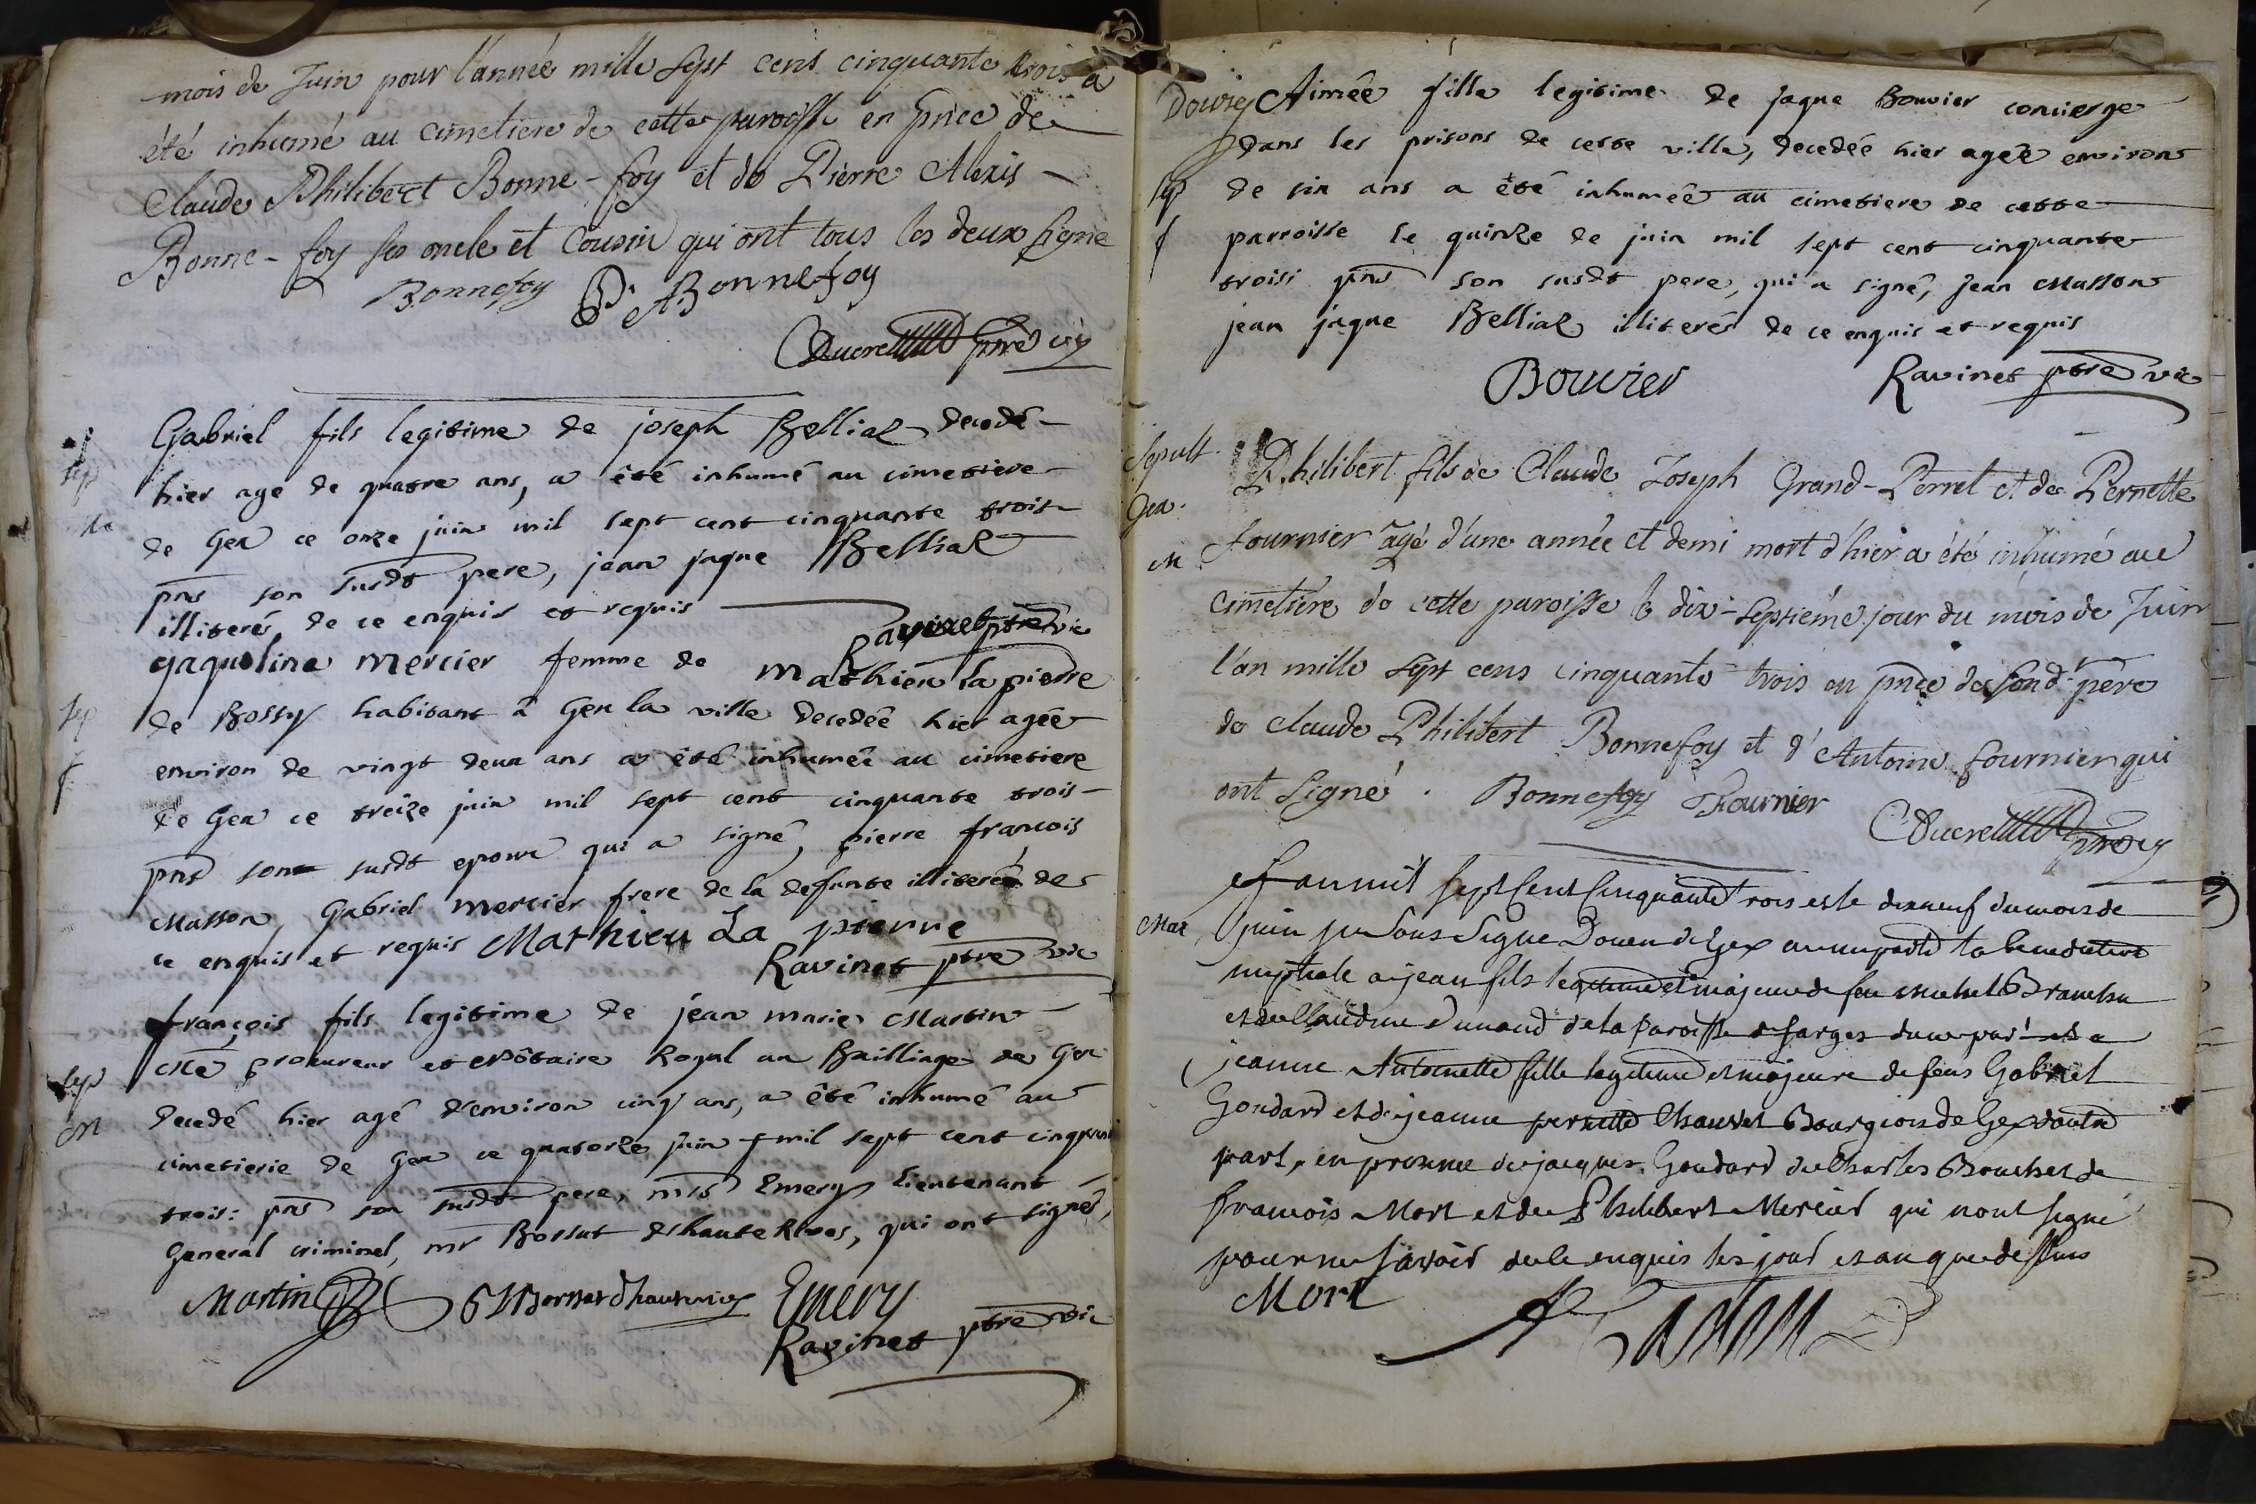 mois de Juin pour l'année mille sept cens cinquante trois a
été inhumé au cimetiere de cette paroisse en pnce de
Claude Philibert Bonne-foy et de Pierre Alexis
Bonne-foy ses oncle et Cousin qui ont tous les deux signé
Bonnefoy P. A Bonnefoy
Ducret ptre vic
Gabriel fils legitime de joseph Belliaz decedé
sep
hier agé de quatre ans, a été inhumé au cimetiere
de Gex ce onze juin mil sept cent cinquante trois
pns son susdt pere, jean jaque Belliaz
illiteré de ce enquis et requis
Ravinet ptre vic
jaqueline Mercier femme de Mathieu la pierre
sep
f
de Bossy habitant à Gex la ville decedée hier agée
environ de vingt deux ans a été inhumée au cimetiere
de Gex ce treize juin mil sept cent cinquante trois
pns son susdt epoux qui a signé, pierre françois
Masson, Gabriel Mercier frere de la defunte illiterés de
ce enquis et requis Mathieu La pierre
Ravinet ptre vic
françois fils legitime de jean marie Martin
sep
M
procureur et Nôtaire Royal au Bailliage de Gex
decedé hier agé d'environ cinq ans, a été inhumé au
cimetierie de Gex ce quatorze juin mil sept cent cinquante
trois: pns son susdt pere, mrs Emery lieutenant
General criminel, mr Bossut dhauterives, qui ont signés,
Martin Emery
Ravinet ptre vic
Aimée fille legitime de jaque Bouvier concierge
dans les prisons de cette ville, decedée hier agée environ
sep
f
de six ans a été inhumée au cimetiere de cette
parroisse le quinze de juin mil sept cent cinquante
trois: pns son susdt pere, qui a signé, Jean Masson
jean jaque Belliaz illiterés de ce enquis et requis
Bouvier Ravinet ptre vic
Sepult.
Gex.
M
Philibert fils de Claude Joseph Grand-Perret et de Pernette
fournier agé d'une année et demi mort d'hier a été inhumé au
cimetière de cette paroisse le dix-septiéme jour du mois de Juin
l'an mille sept cens cinquante trois en pnce de sond. père
de Claude Philibert Bonnefoy et d'Antoine fournier qui
ont signé. Bonnefoy Fournier
Ducret ptre vic
L'an mil sept Cent Cinquante trois et le dixneuf du mois de
Mar
juin je sous signé Doyen de Gex ay imparti la benediction
nuptiale a jean fils legitime et majeur de feu Michel
et de Claudine Dunand de la Paroisse de farges d'une part et a
jeanne Antoinette fille legitime et majeure de feus Gabriel
Goudard et de jeanne pernette Chauvet Bourgeois de Gex d'autre
part, en presence de jacques Goudard de Charles Brouchet de
françois Mort et de Philibert Mercier qui n'ont signé
pour ne savoir de ce enquis les jour et an que dessus
Mort